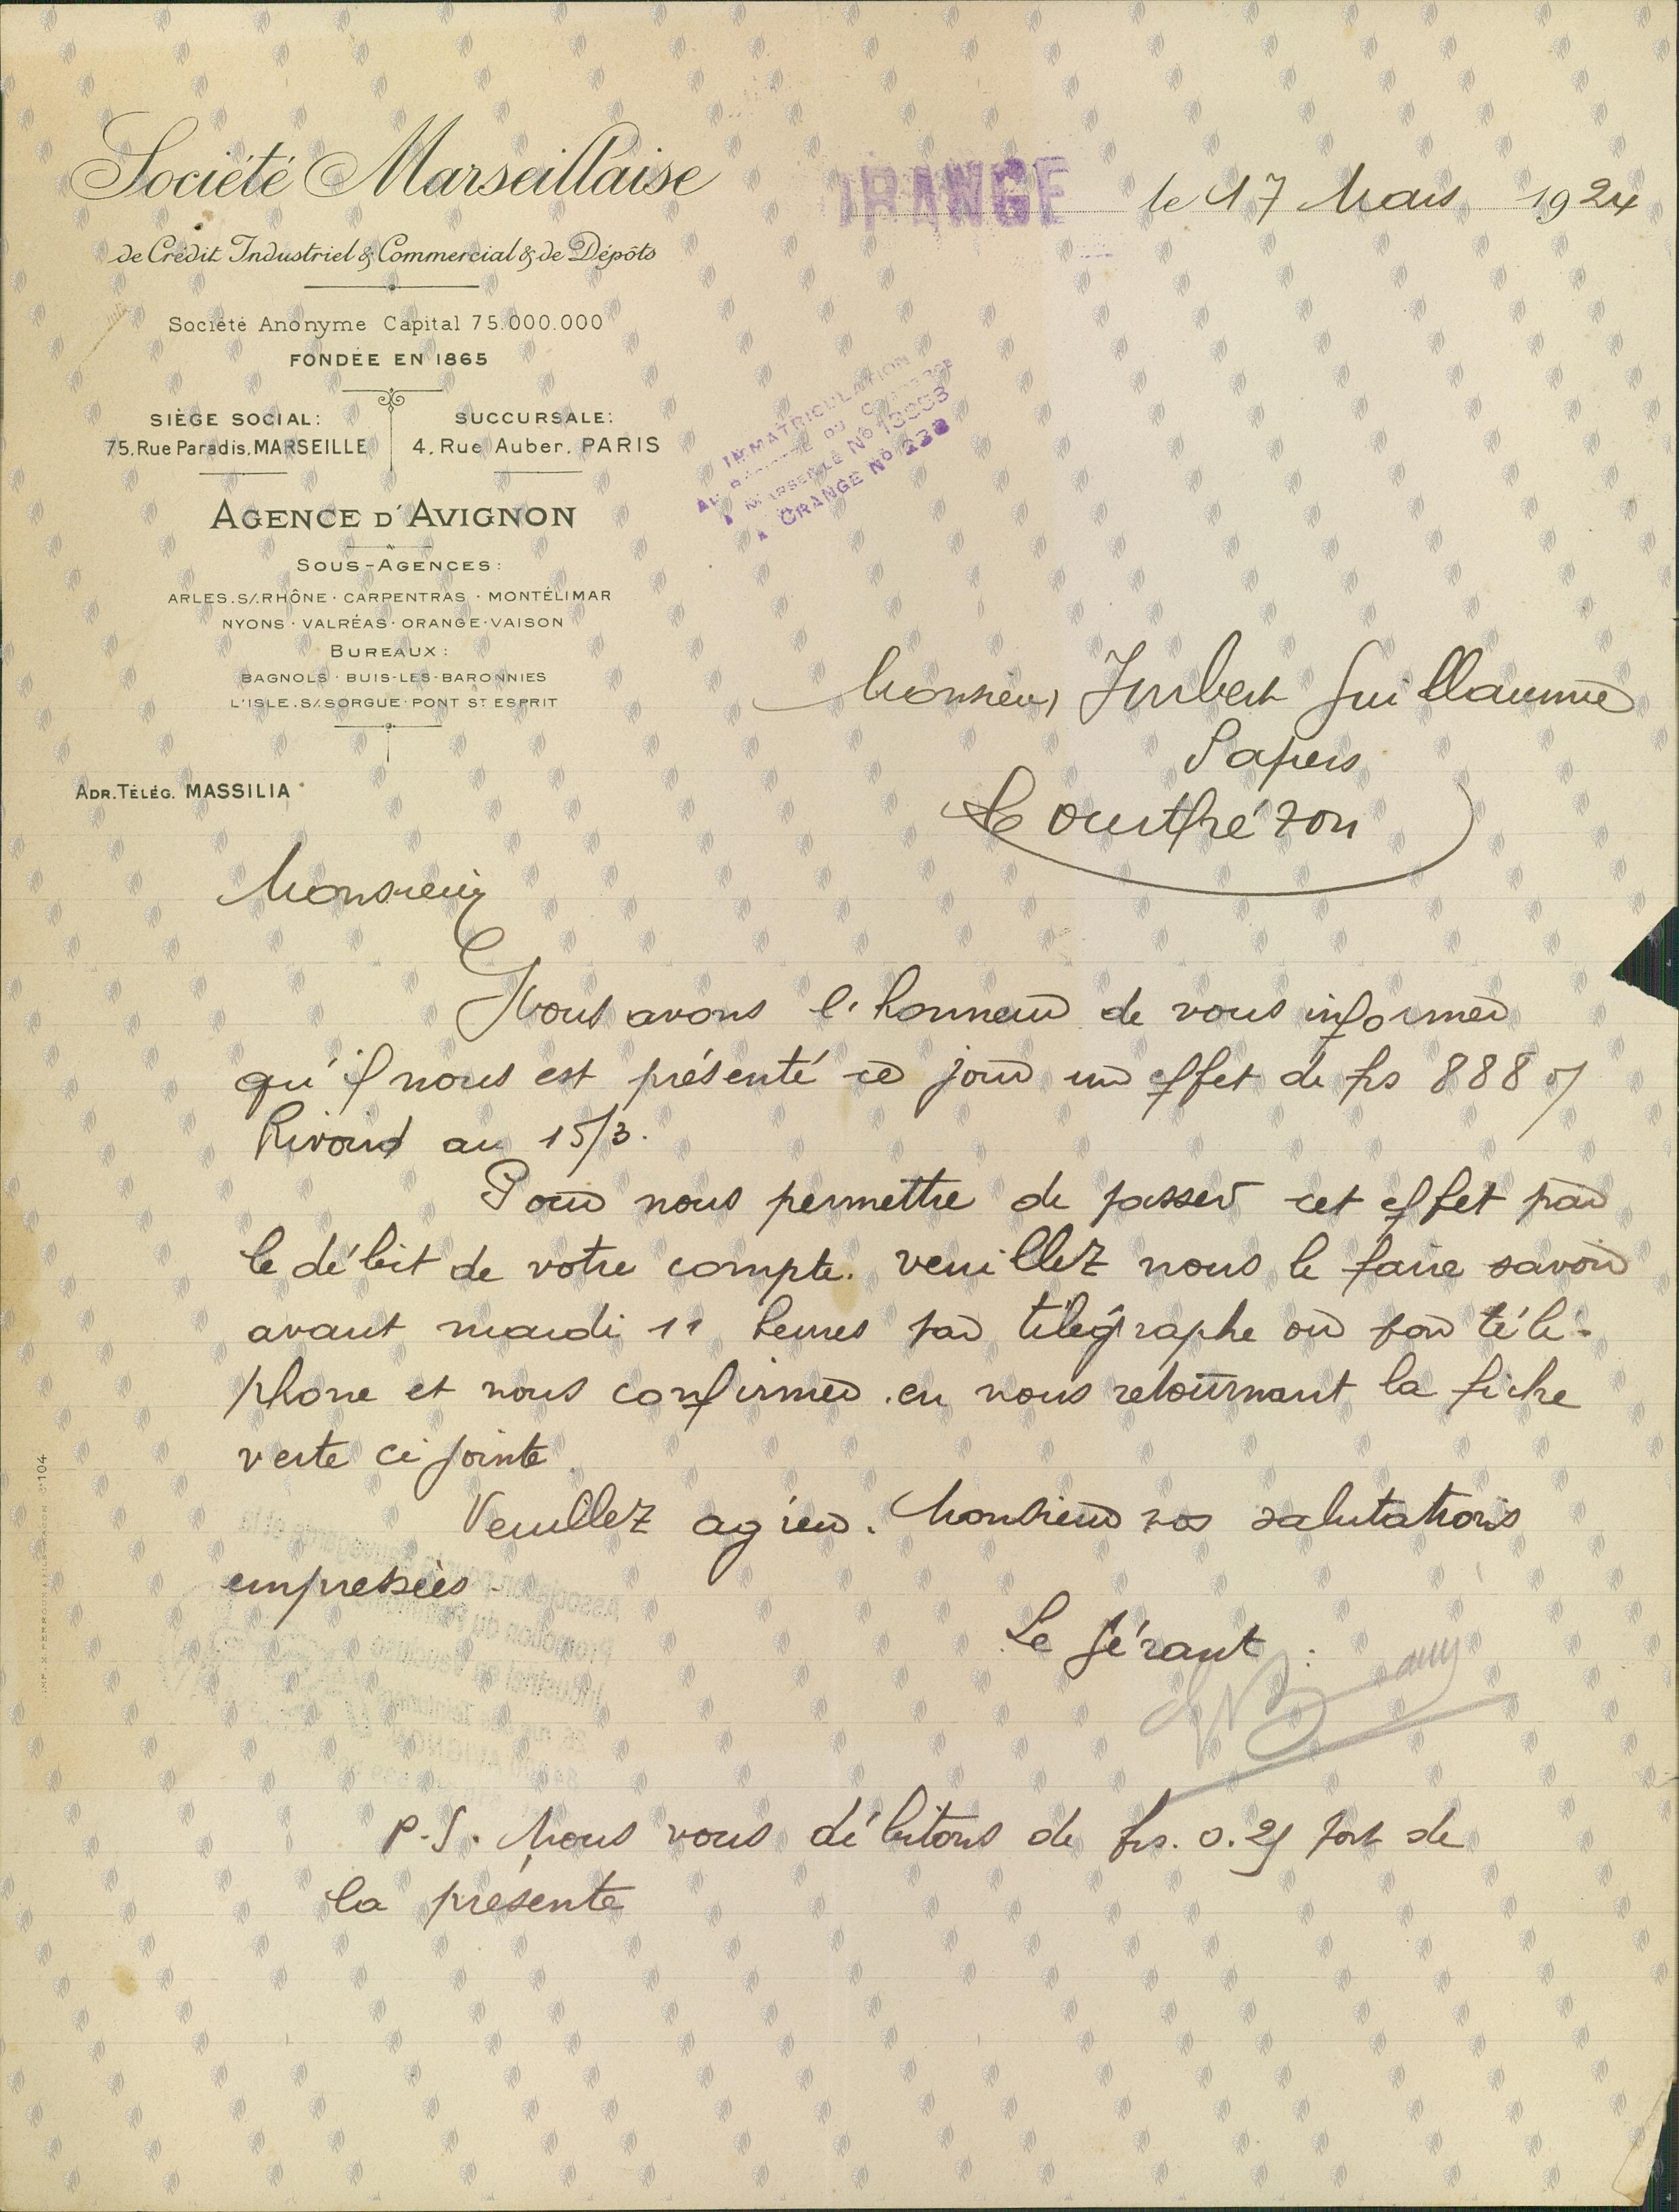 Société Marseillaise
de Crédit Industriel & Commercial & de Dépôts
Société Anonyme Capital 75.000.000
FONDÉE EN 1865
SIÈGE SOCIAL:
75, Rue Paradis, MARSEILLE
SUCCURSALE:
4, Rue Auber, PARIS
AGENCE D'AVIGNON
SOUS-AGENCES:
ARLES.S/.RHÔNE · CARPENTRAS · MONTÉLIMAR
NYONS · VALRÉAS · ORANGE · VAISON
BUREAUX:
BAGNOLS · BUIS-LES-BARONNIES
L'ISLE.S/.SORGUE · PONT ST ESPRIT
ADR. TÉLÉG. MASSILIA
ORANGE le 17 Mars 1924
IMMATRICULATION
AU REGISTRE DU COMMERCE
MARSEILLE No
ORANGE No
Monsieur Imbert Guillaume
Papiers
Courthézon
Monsieur
Nous avons l'honneur de vous informer
qu'il nous est présenté ce jour un effet de frs 888
au 15/3.
Pour nous permettre de passer cet effet par
le débit de votre compte. veuillez nous le faire savoir
avant mardi 11 heures par télégraphe ou par télé-
phone et nous confirmer en nous retournant la fiche
verte ci jointe
Veuillez agréer. Monsieur nos salutations
empressées
Le Gérant:
P.S. Nous vous débitons de frs. 0.25 port de
la présente